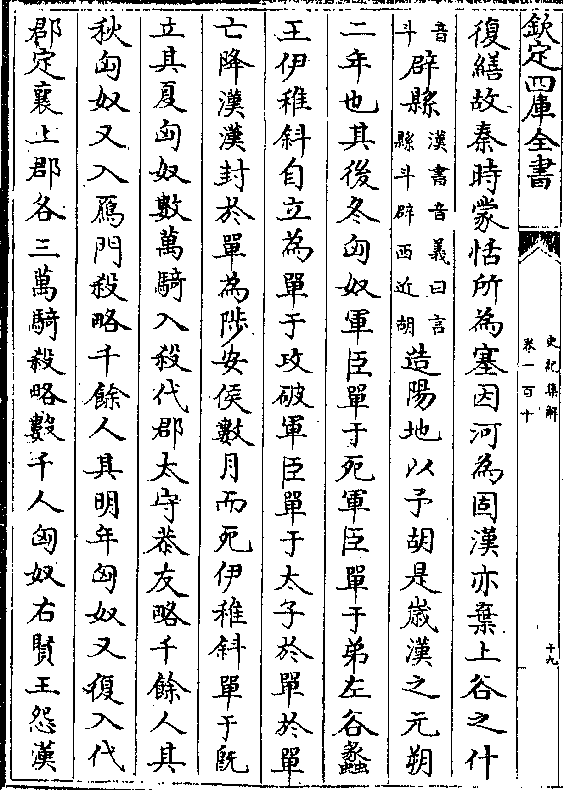 欽定四庫全書
史記集解
卷一百十
十九
復繕故秦時蒙恬所為塞因河為固漢亦棄上谷之什
音斗辟縣漢書音義曰言縣斗辟西近胡造陽地以予胡是嵗漢之元朔
二年也其後冬匈奴軍臣單于死軍臣單于弟左谷蠡
王伊稚斜自立為單于攻破軍臣單于太子於單於單
亡降漢漢封於單為陟安侯數月而死伊稚斜單于既
立其夏匈奴數萬騎入殺代郡太守恭友略千餘人其
秋匈奴又入鴈門殺略千餘人其明年匈奴又復入代
郡定襄上郡各三萬騎殺略數千人匈奴右賢王怨漢